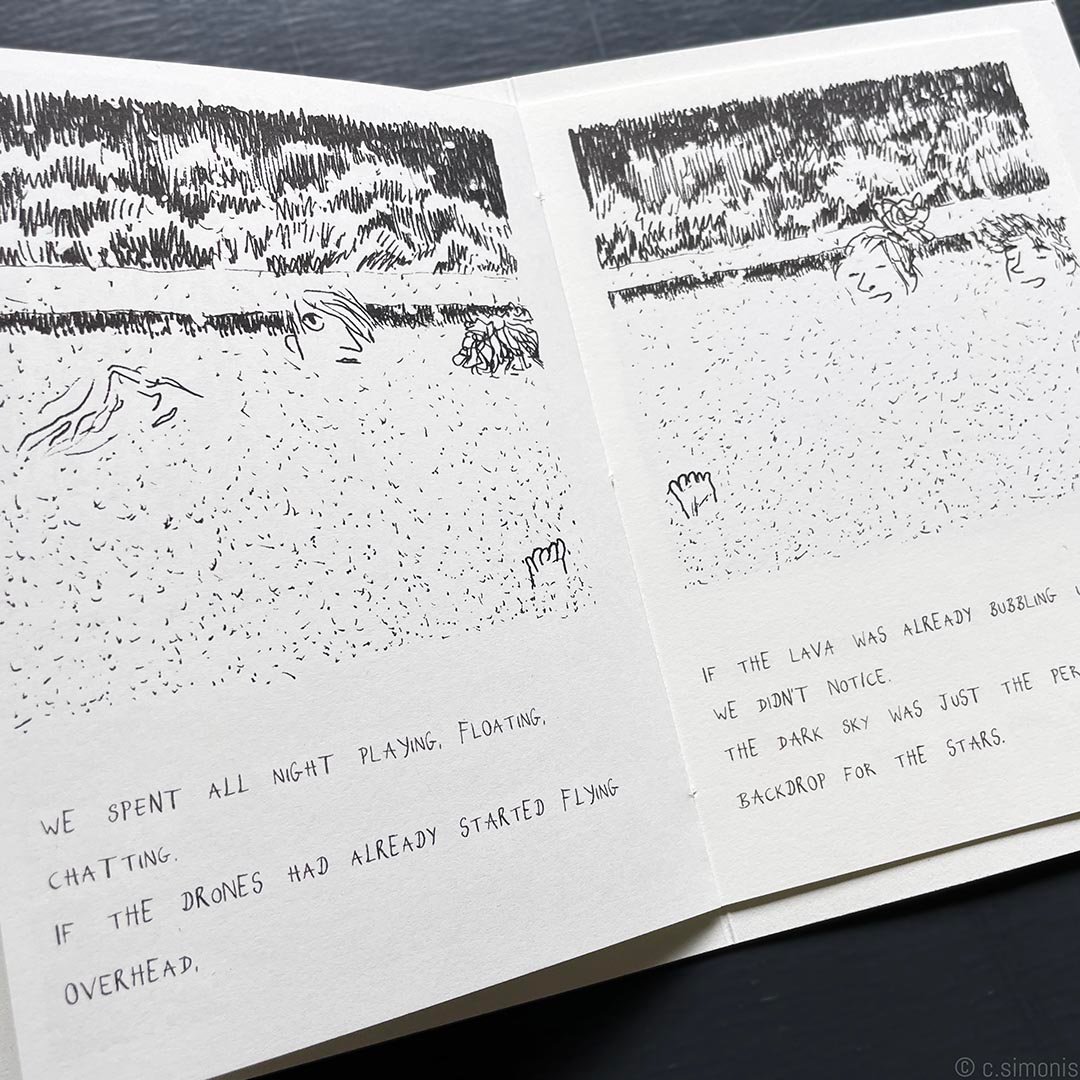 WE SPENT ALL NIGHT PLAYING, FLOATING,
CHATTING.
IF THE DRONES HAD ALREADY STARTED FLYING
OVERHEAD,
IF THE LAVA WAS ALREADY BUBBLING
WE DIDN'T NOTICE.
THE DARK SKY WAS JUST THE
BACKDROP FOR THE STARS.
© c.simonis